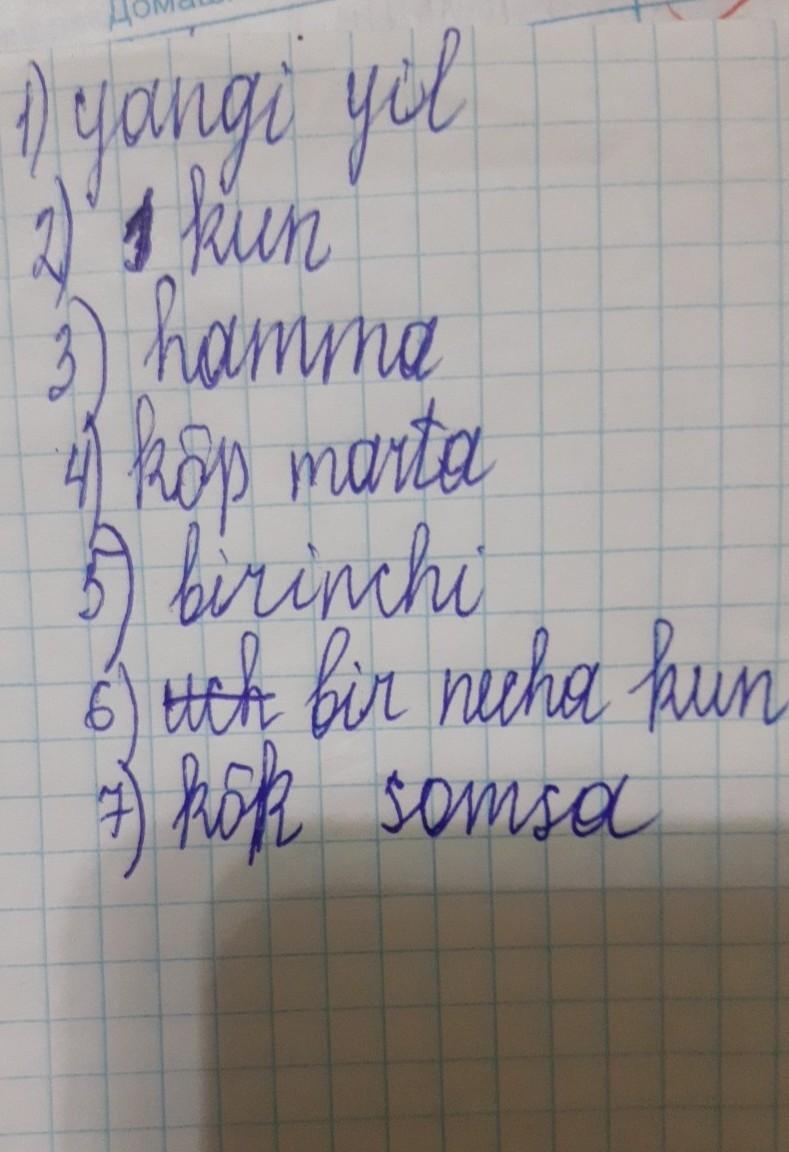 Домаш
1) yangi yil
2) 1 kun
3) hamma
4) kōp marta
5) birinchi
6) uch bir necha kun
7) kōk somsa